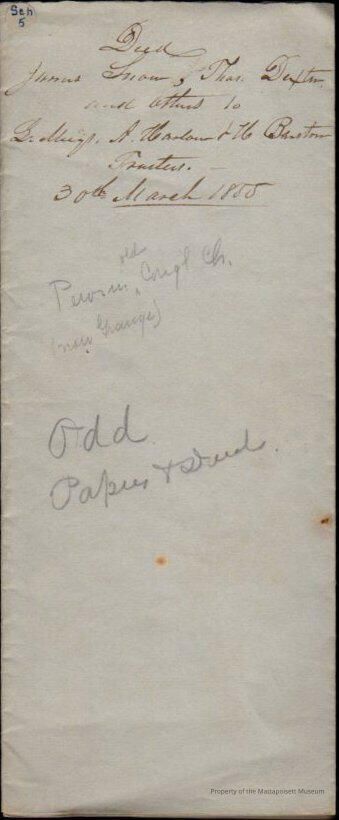 Sch
5
Deed
James Snow, Thos. Dexter
and others to
L. Meigs. A. Harlow & H Barstow
Trustees. —
30th March 18
old
Pews in Congl Ch.
(now Grange)
Odd
Papers & Deeds.
Property of the Mattapoisett Museum